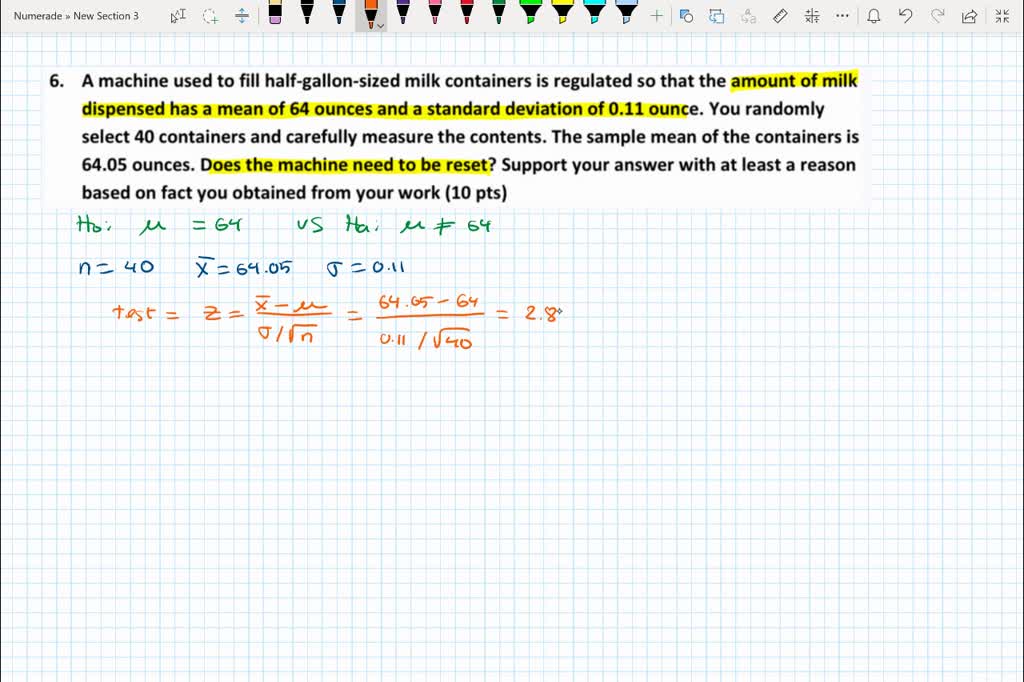 Numerade » New Section 3
6. A machine used to fill half-gallon-sized milk containers is regulated so that the amount of milk
dispensed has a mean of 64 ounces and a standard deviation of 0.11 ounce. You randomly
select 40 containers and carefully measure the contents. The sample mean of the containers is
64.05 ounces. Does the machine need to be reset? Support your answer with at least a reason
based on fact you obtained from your work (10 pts)
Ho: μ = 64 vs Ha: μ ≠ 64
n = 40 x̄ = 64.05 σ = 0.11
test = z = (x̄ − μ) / (σ/√n) = (64.05 − 64) / (0.11/√40) = 2.8